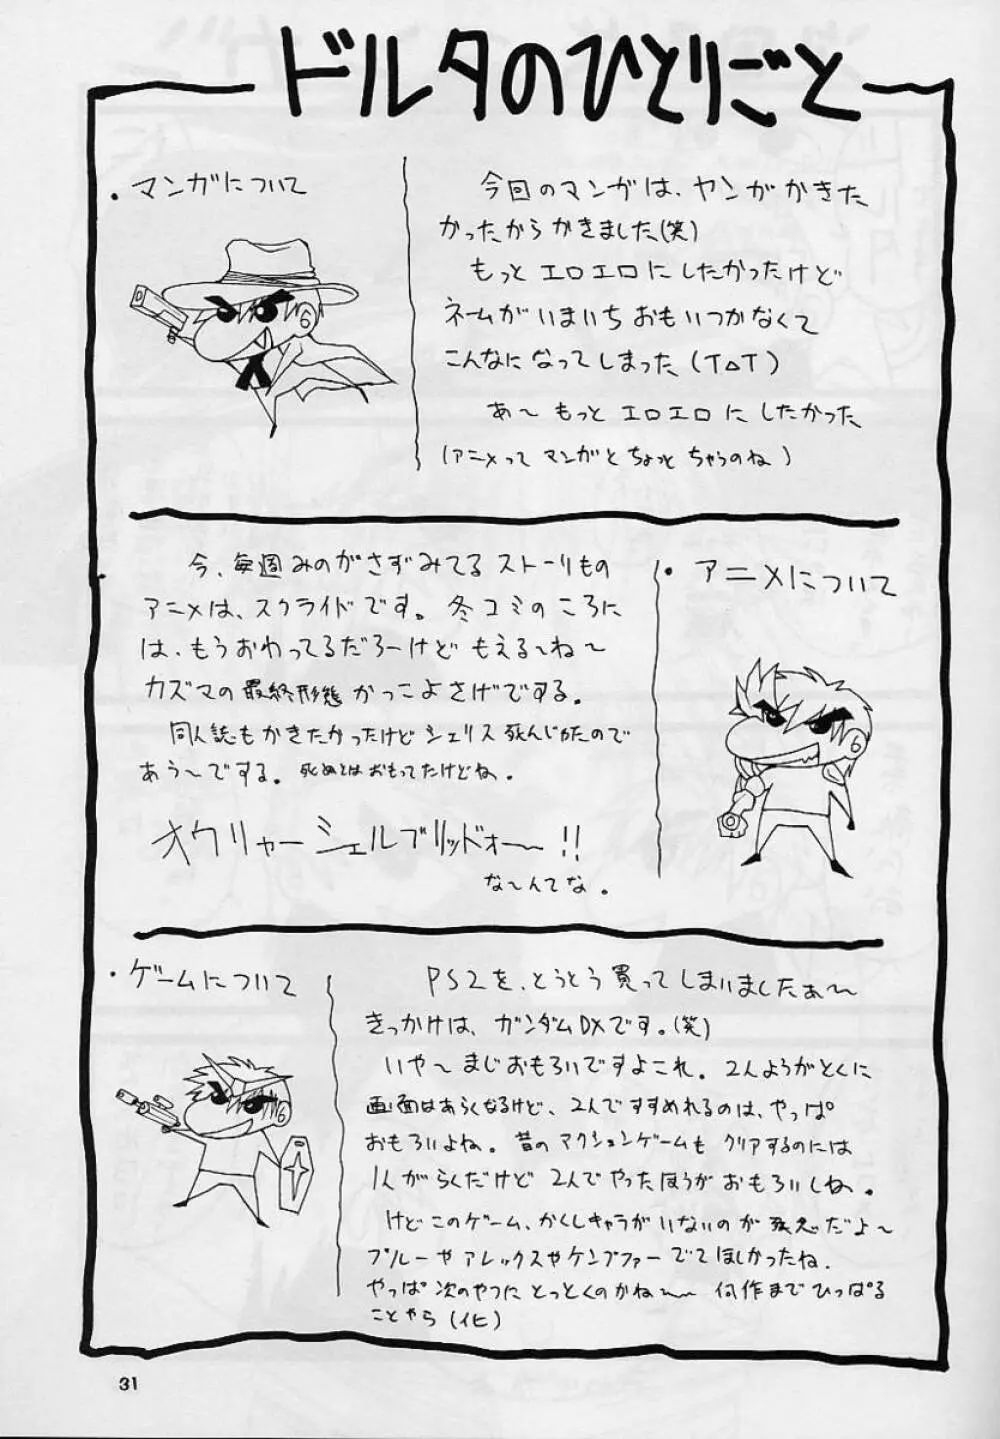 ドルタのひとりごと
・マンガについて
今回のマンガは、ヤンがかきた
かったからかきました(笑)
もっとエロエロにしたかったけど
ネームがいまいちおもいつかなくて
こんなになってしまった(T△T)
あ〜もっとエロエロにしたかった
(アニメってマンガとちょっとちがうのね)
・アニメについて
今、毎週みのがさずみてるストーリもの
アニメは、スクライドです。冬コミのころに
は、もうおわってるだろーけどもえる〜ね〜
カズマの最終形態かっこよさげでする。
同人誌もかきたかったけどシェリス死んじゃたので
あう〜でする。死ぬとはおもってたけどね。
オウリャーシェルブリッドォー〜!!
な〜んてな。
・ゲームについて
PS2を、とうとう買ってしまいましたぁ〜
きっかけは、ガンダムDXです。(笑)
いや〜まじおもろいですよこれ。2人ようがとくに
画面はあらくなるけど、2人ですすめれるのは、やっぱ
おもろいよね。昔のアクションゲームもクリアするのには
1人がらくだけど2人でやったほうがおもろいしね。
けどこのゲーム、かくしキャラがいないのが残念だよ〜
プルーやアレックスやケンプファーでてほしかったね。
やっぱ次のやつにとっとくのかね〜 何作までひっぱる
ことやら(イヒ)
31